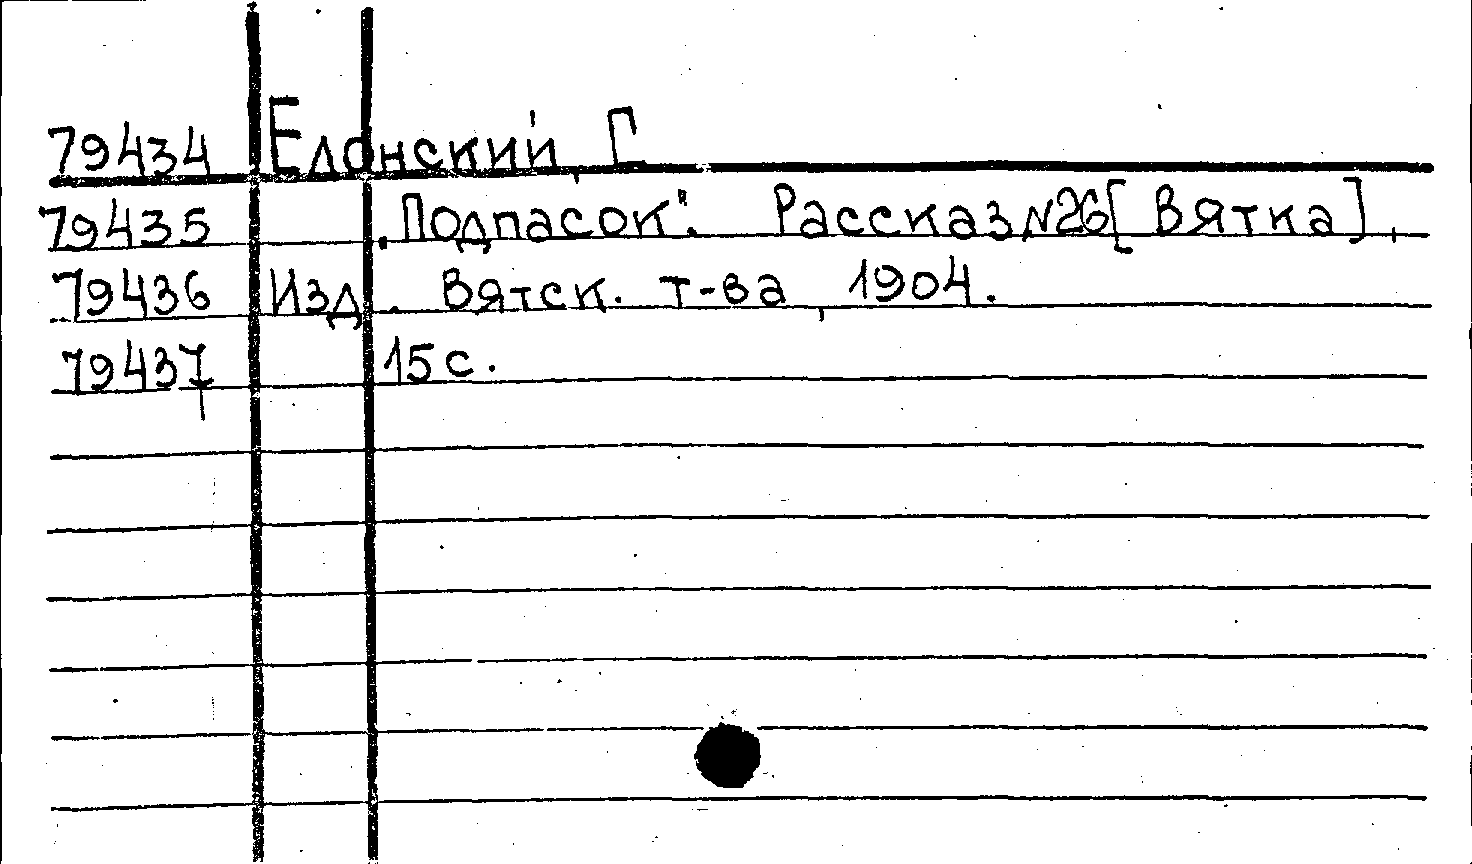 79434 Елонский, Г
79435 „Подпасок". Рассказ №26 [Вятка],
79436 Изд. Вятск. т-ва, 1904.
79437 15 с.